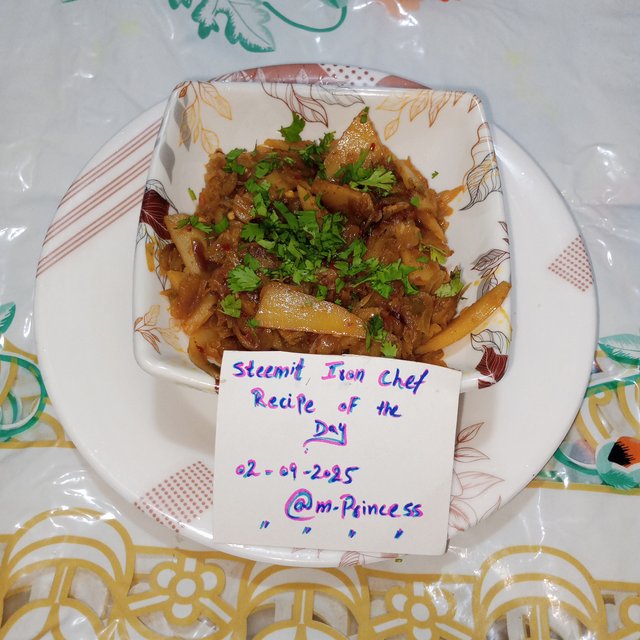 Steemit Iron Chef
Recipe of the
Day
02-09-2025
@m-Princess
" " " "